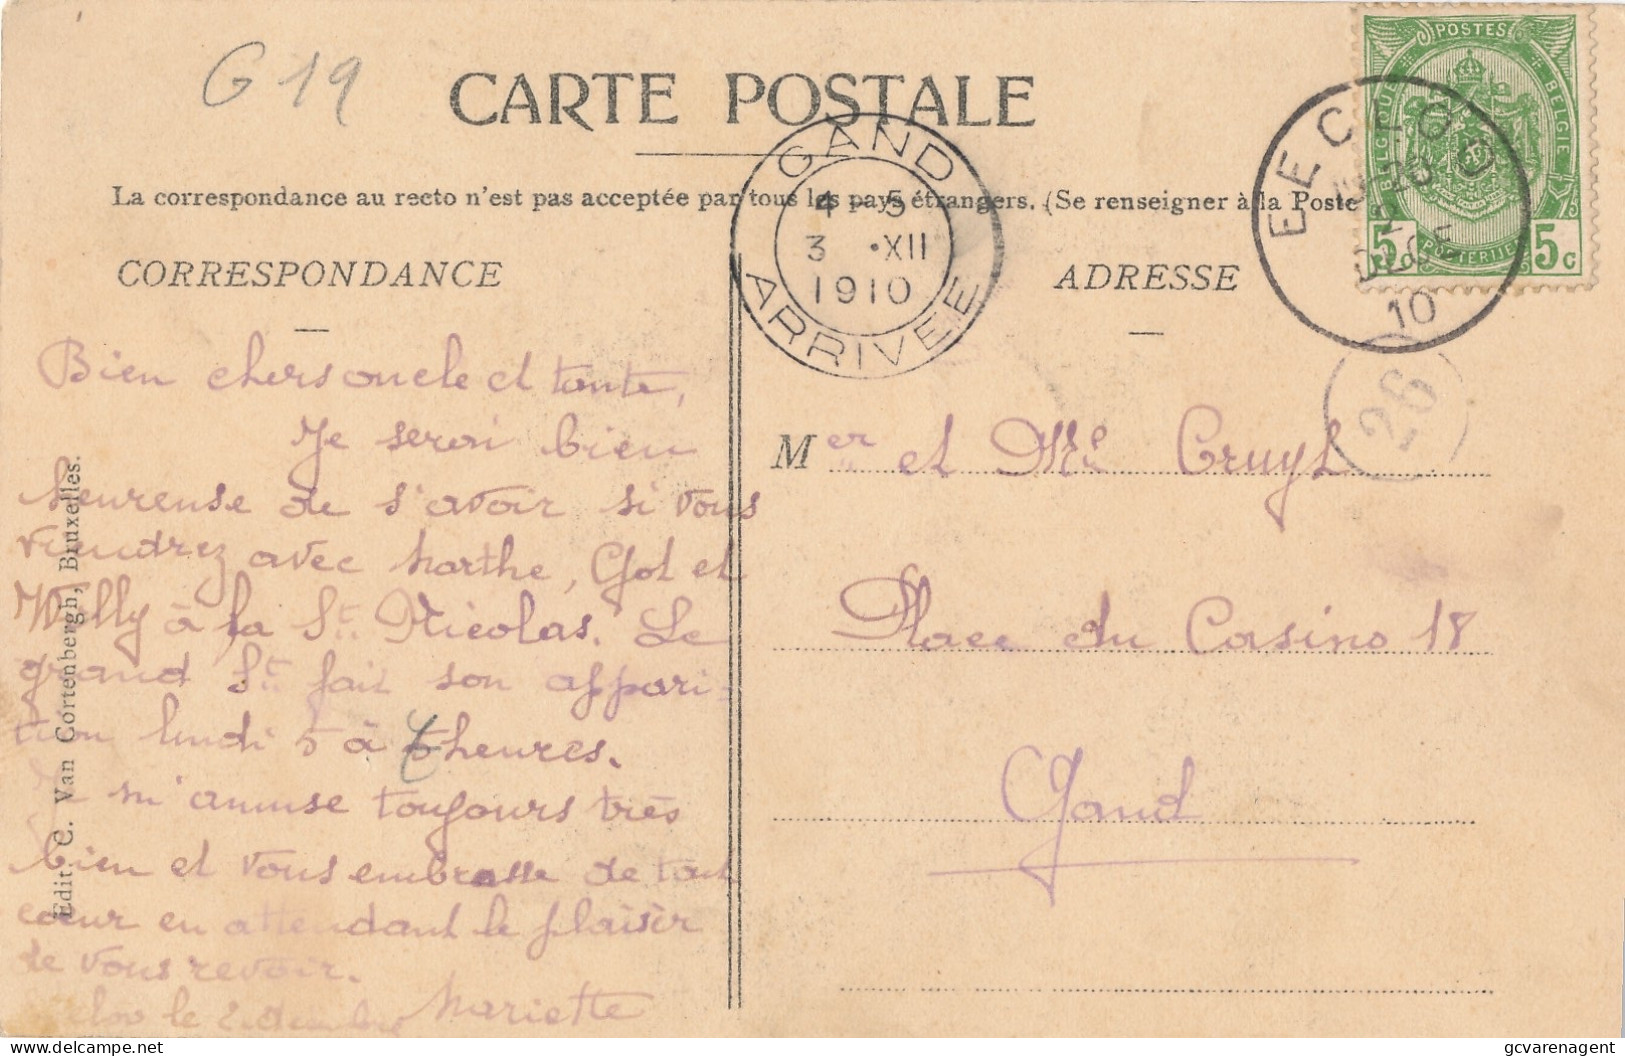 G 19
CARTE POSTALE
La correspondance au recto n'est pas acceptée par tous les pays étrangers. (Se renseigner à la Poste
CORRESPONDANCE
Bien chers oncle et tante,
Je serai bien
heureuse de s'avoir si vous
viendrez avec Marthe, et
Willy à la St. Nicolas. Le
grand St. fait son appari-
tion lundi 5 à heures.
m'amuse toujours très
bien et vous embrasse de tout
cœur en attendant le plaisir
de vous revoir.
le 2 décembre Mariette
Edit. C. Van Cortenbergh, Bruxelles.
GAND
4 - 5
3 · XII
1910
ARRIVEE
POSTES
BELGIQUE
BELGIE
POSTERIJEN
5 c
5 c
EECLOO
20
2
DECE
10
26
ADRESSE
Mer et Me Cruyt
Place du Casino 18
Gand
delcampe.net
gcvarenagent